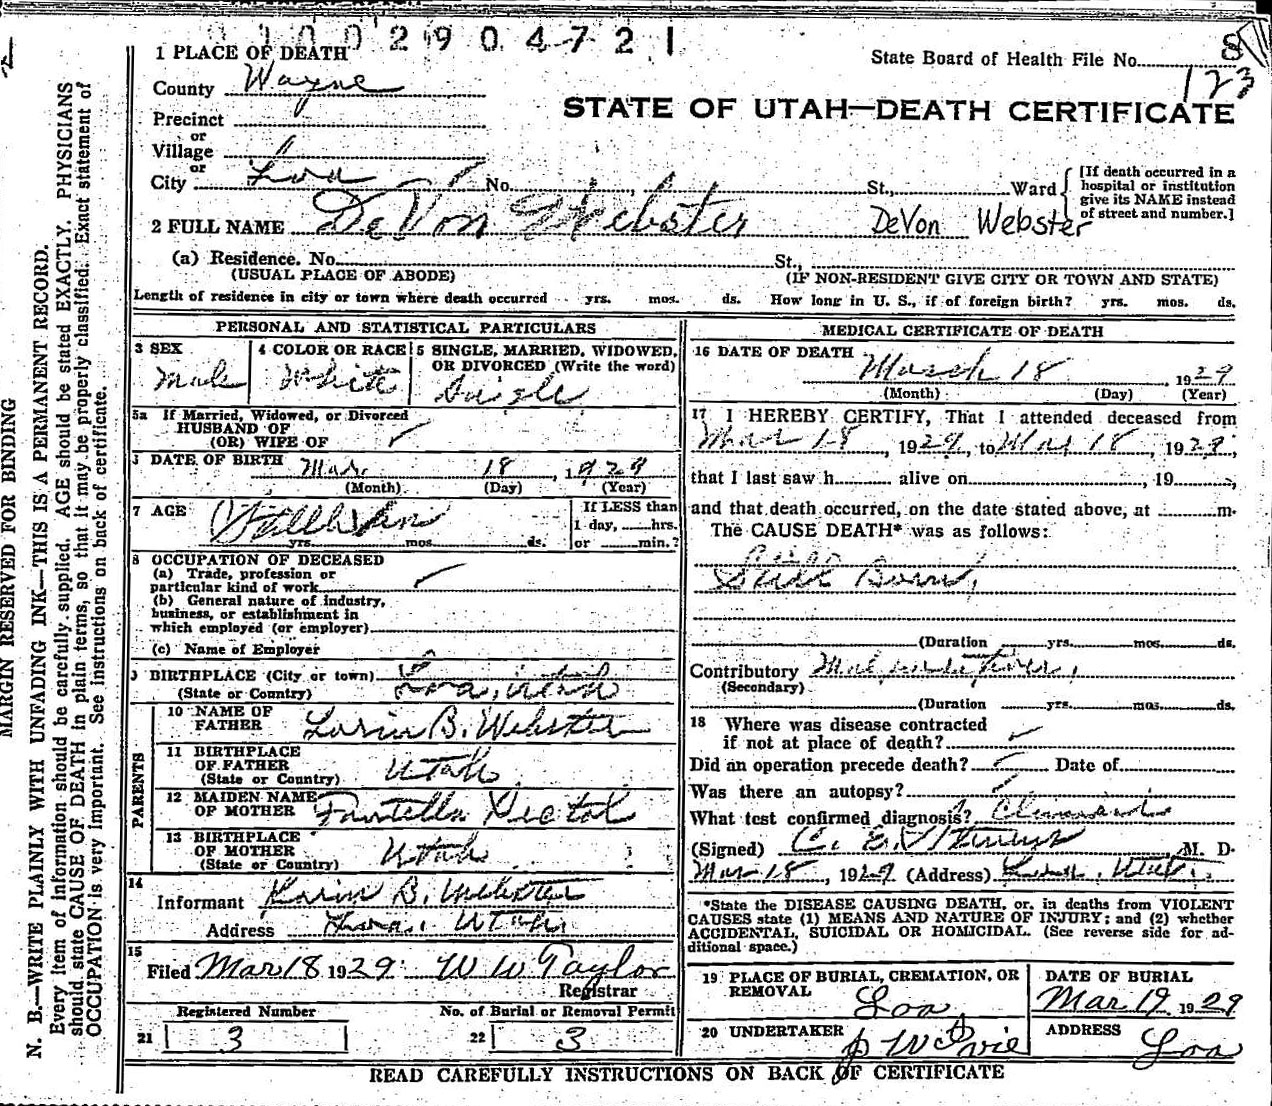 1002904721
1 PLACE OF DEATH
State Board of Health File No. 8
123
County Wayne
STATE OF UTAH—DEATH CERTIFICATE
Precinct
or
Village
or
City Loa No. , St., Ward
[If death occurred in a hospital or institution give its NAME instead of street and number.]
2 FULL NAME DeVon Webster DeVon Webster
(a) Residence. No. St.,
(USUAL PLACE OF ABODE) (IF NON-RESIDENT GIVE CITY OR TOWN AND STATE)
Length of residence in city or town where death occurred yrs. mos. ds. How long in U. S., if of foreign birth? yrs. mos. ds.
PERSONAL AND STATISTICAL PARTICULARS
3 SEX
Male
4 COLOR OR RACE
White
5 SINGLE, MARRIED, WIDOWED,
OR DIVORCED (Write the word)
Single
5a If Married, Widowed, or Divorced
HUSBAND OF
(OR) WIFE OF
DATE OF BIRTH Mar. 18, 1929
(Month) (Day) (Year)
7 AGE Stillborn
yrs. mos. ds.
If LESS than
1 day, hrs.
or min.?
8 OCCUPATION OF DECEASED
(a) Trade, profession or
particular kind of work
(b) General nature of industry,
business, or establishment in
which employed (or employer)
(c) Name of Employer
9 BIRTHPLACE (City or town) Loa, Utah
(State or Country)
PARENTS
10 NAME OF
FATHER Lorin B. Webster
11 BIRTHPLACE
OF FATHER Utah
(State or Country)
12 MAIDEN NAME
OF MOTHER
13 BIRTHPLACE
OF MOTHER Utah
(State or Country)
14
Informant Lorin B. Webster
Address Loa, Utah
15
Filed Mar 18 1929 W W Taylor
Registrar
Registered Number No. of Burial or Removal Permit
21 3 22 3
MEDICAL CERTIFICATE OF DEATH
16 DATE OF DEATH March 18, 1929
(Month) (Day) (Year)
17 I HEREBY CERTIFY, That I attended deceased from
Mar 18, 1929, to Mar 18, 1929,
that I last saw h alive on , 19 ,
and that death occurred, on the date stated above, at m.
The CAUSE DEATH* was as follows:
Still Born,
(Duration yrs. mos. ds.
Contributory
(Secondary)
(Duration yrs. mos. ds.
18 Where was disease contracted
if not at place of death?
Did an operation precede death? Date of
Was there an autopsy?
What test confirmed diagnosis?
(Signed) M. D.
Mar 18, 1929 (Address) Loa, Utah
*State the DISEASE CAUSING DEATH, or, in deaths from VIOLENT
CAUSES state (1) MEANS AND NATURE OF INJURY; and (2) whether
ACCIDENTAL, SUICIDAL OR HOMICIDAL. (See reverse side for ad-
ditional space.)
19 PLACE OF BURIAL, CREMATION, OR
REMOVAL
Loa
DATE OF BURIAL
Mar 19 1929
20 UNDERTAKER
ADDRESS
Loa
READ CAREFULLY INSTRUCTIONS ON BACK OF CERTIFICATE
MARGIN RESERVED FOR BINDING
N. B.—WRITE PLAINLY WITH UNFADING INK—THIS IS A PERMANENT RECORD.
Every item of information should be carefully supplied. AGE should be stated EXACTLY. PHYSICIANS
should state CAUSE OF DEATH in plain terms, so that it may be properly classified. Exact statement of
OCCUPATION is very important. See instructions on back of certificate.